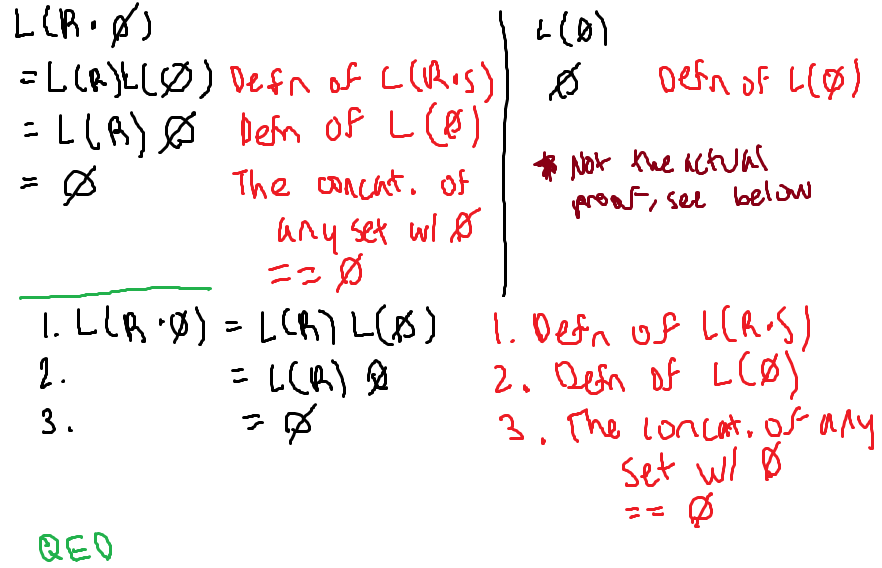 L(R·∅)
= L(R)L(∅) Defn of L(R·S)
= L(R) ∅ Defn of L(∅)
= ∅ The concat. of
any set w/ ∅
== ∅
L(∅)
∅ Defn of L(∅)
* Not the actual
proof, see below
1. L(R·∅) = L(R) L(∅) 1. Defn of L(R·S)
2. = L(R) ∅ 2. Defn of L(∅)
3. = ∅ 3. The concat. of any
set w/ ∅
== ∅
QED